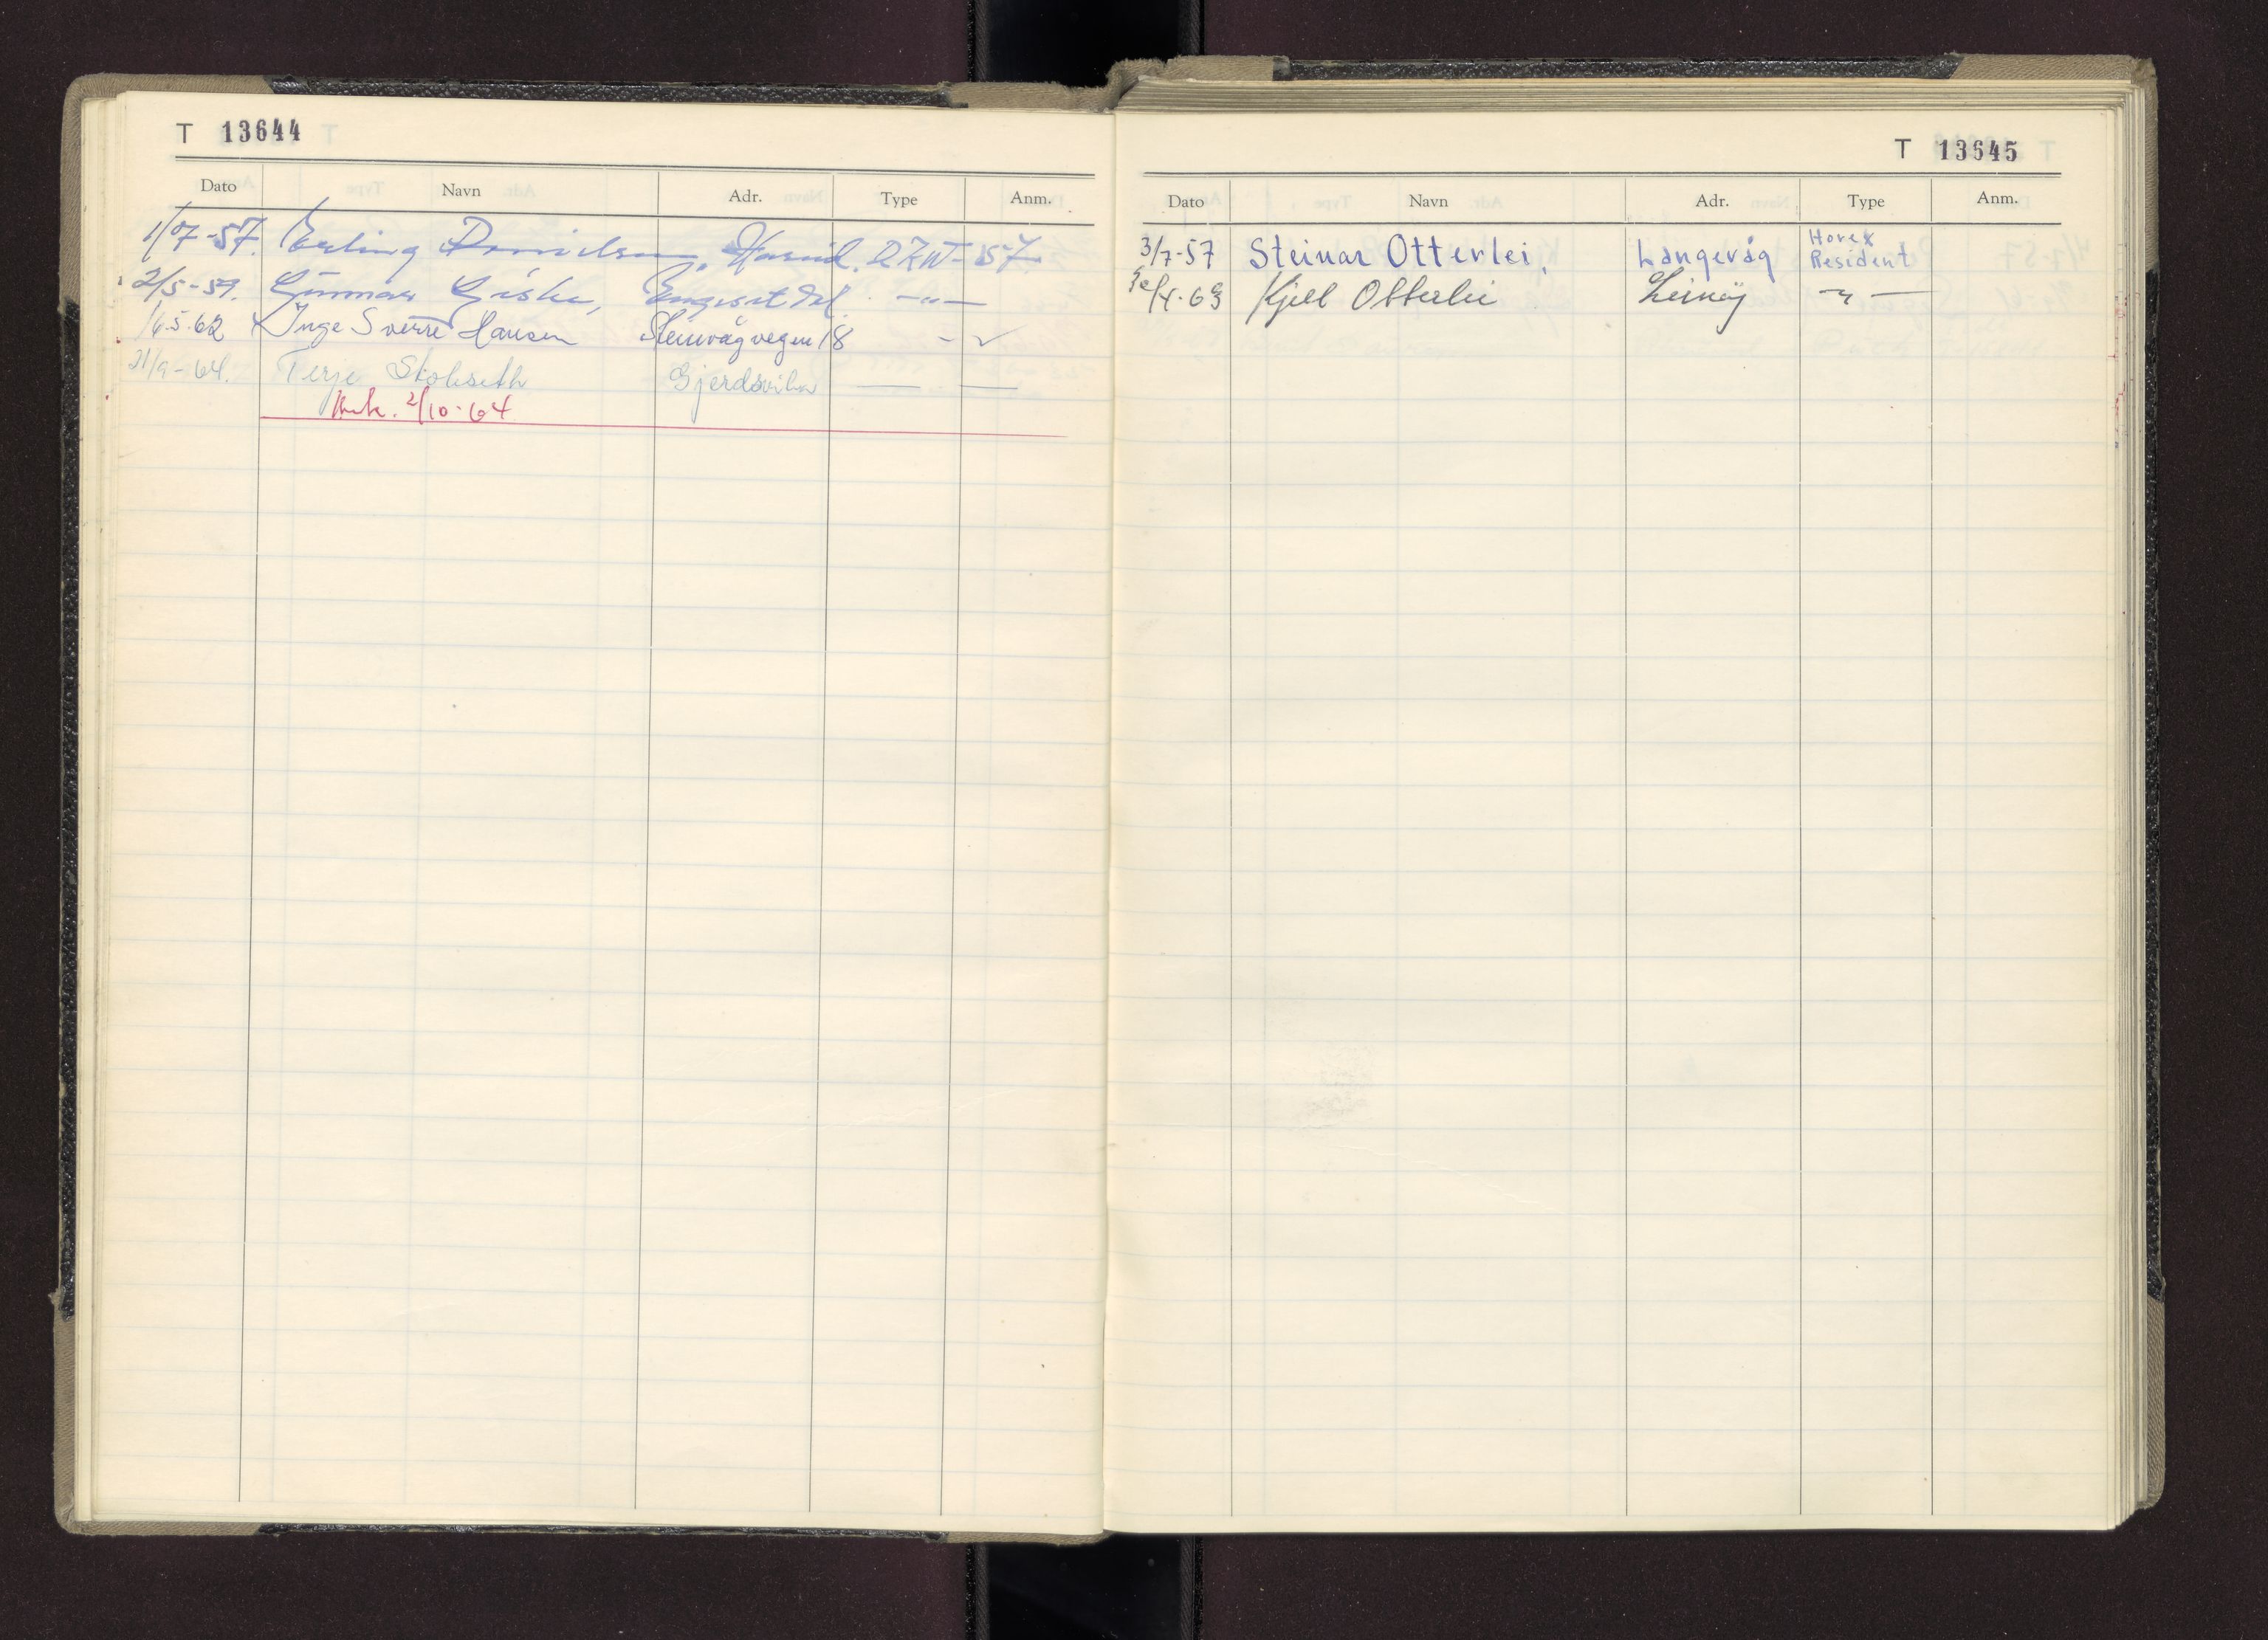 T 13644
Dato Navn Adr. Type Anm.
1/07-57. Erling Danielsen, Hareid. DKW-57.
2/5-59. Gunnar Giske, Engesetdal. -"-
16.5.62 Inge Sverre Hansen Steinvågvegen 18 - "
21/9-64. Terje Skoliseth Gjerdsvika — —
2/10-64
T 13645
Dato Navn Adr. Type Anm.
3/7-57 Steinar Otterlei. Langevåg Horex Resident
/4-63 Kjell Otterlei Leinøy — " —